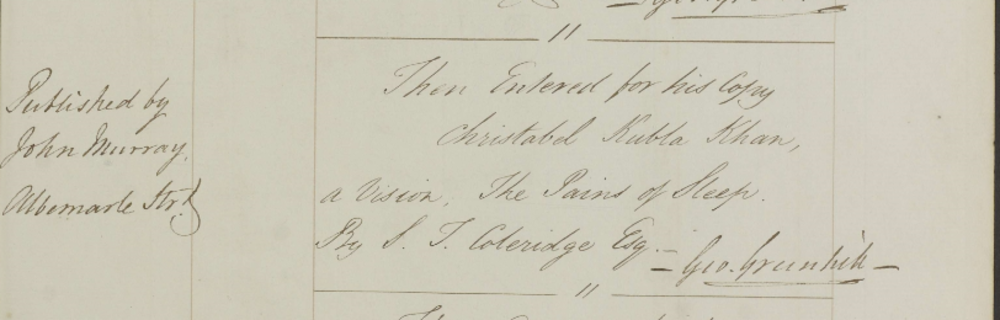 Published by
John Murray,
Albemarle Strt
Then Entered for his Copy
Christabel Kubla Khan,
a Vision. The Pains of Sleep.
By S. T. Coleridge Esq. –
– Geo. Greenhill –